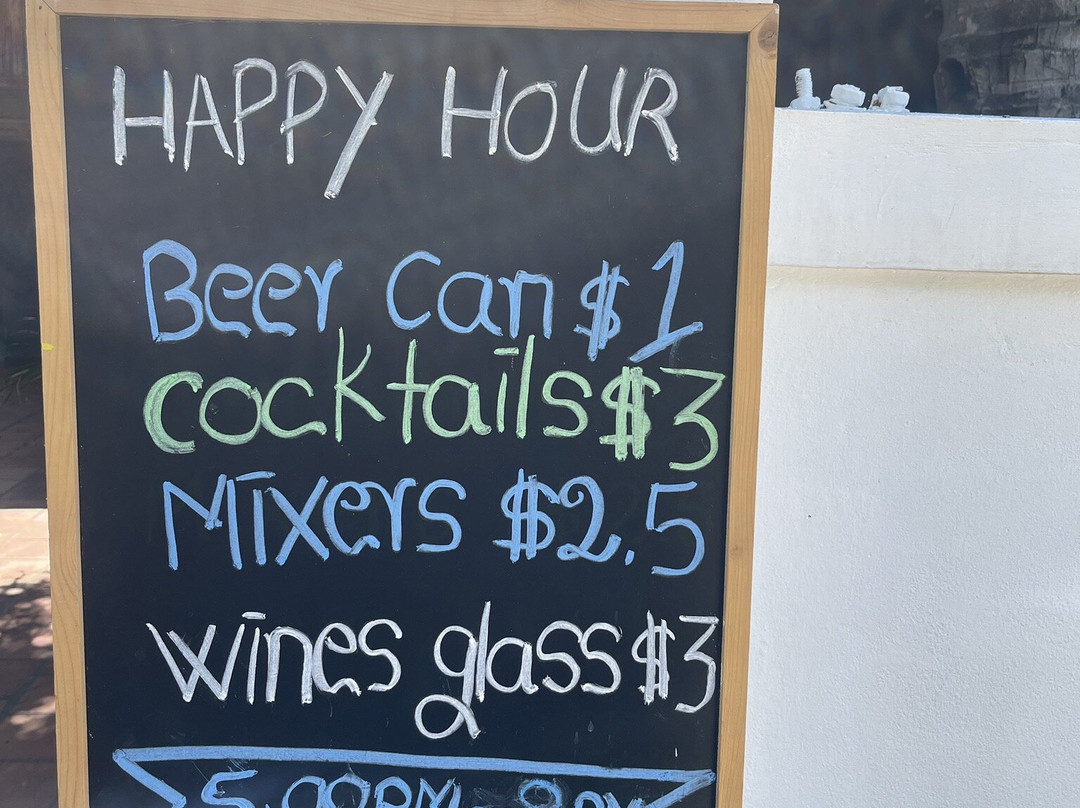 HAPPY HOUR
Beer Can $1
cocktails $3
Mixers $2.5
wines glass $3